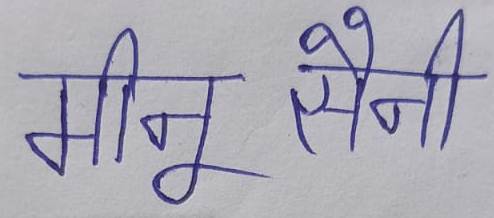 मीनू सैनी